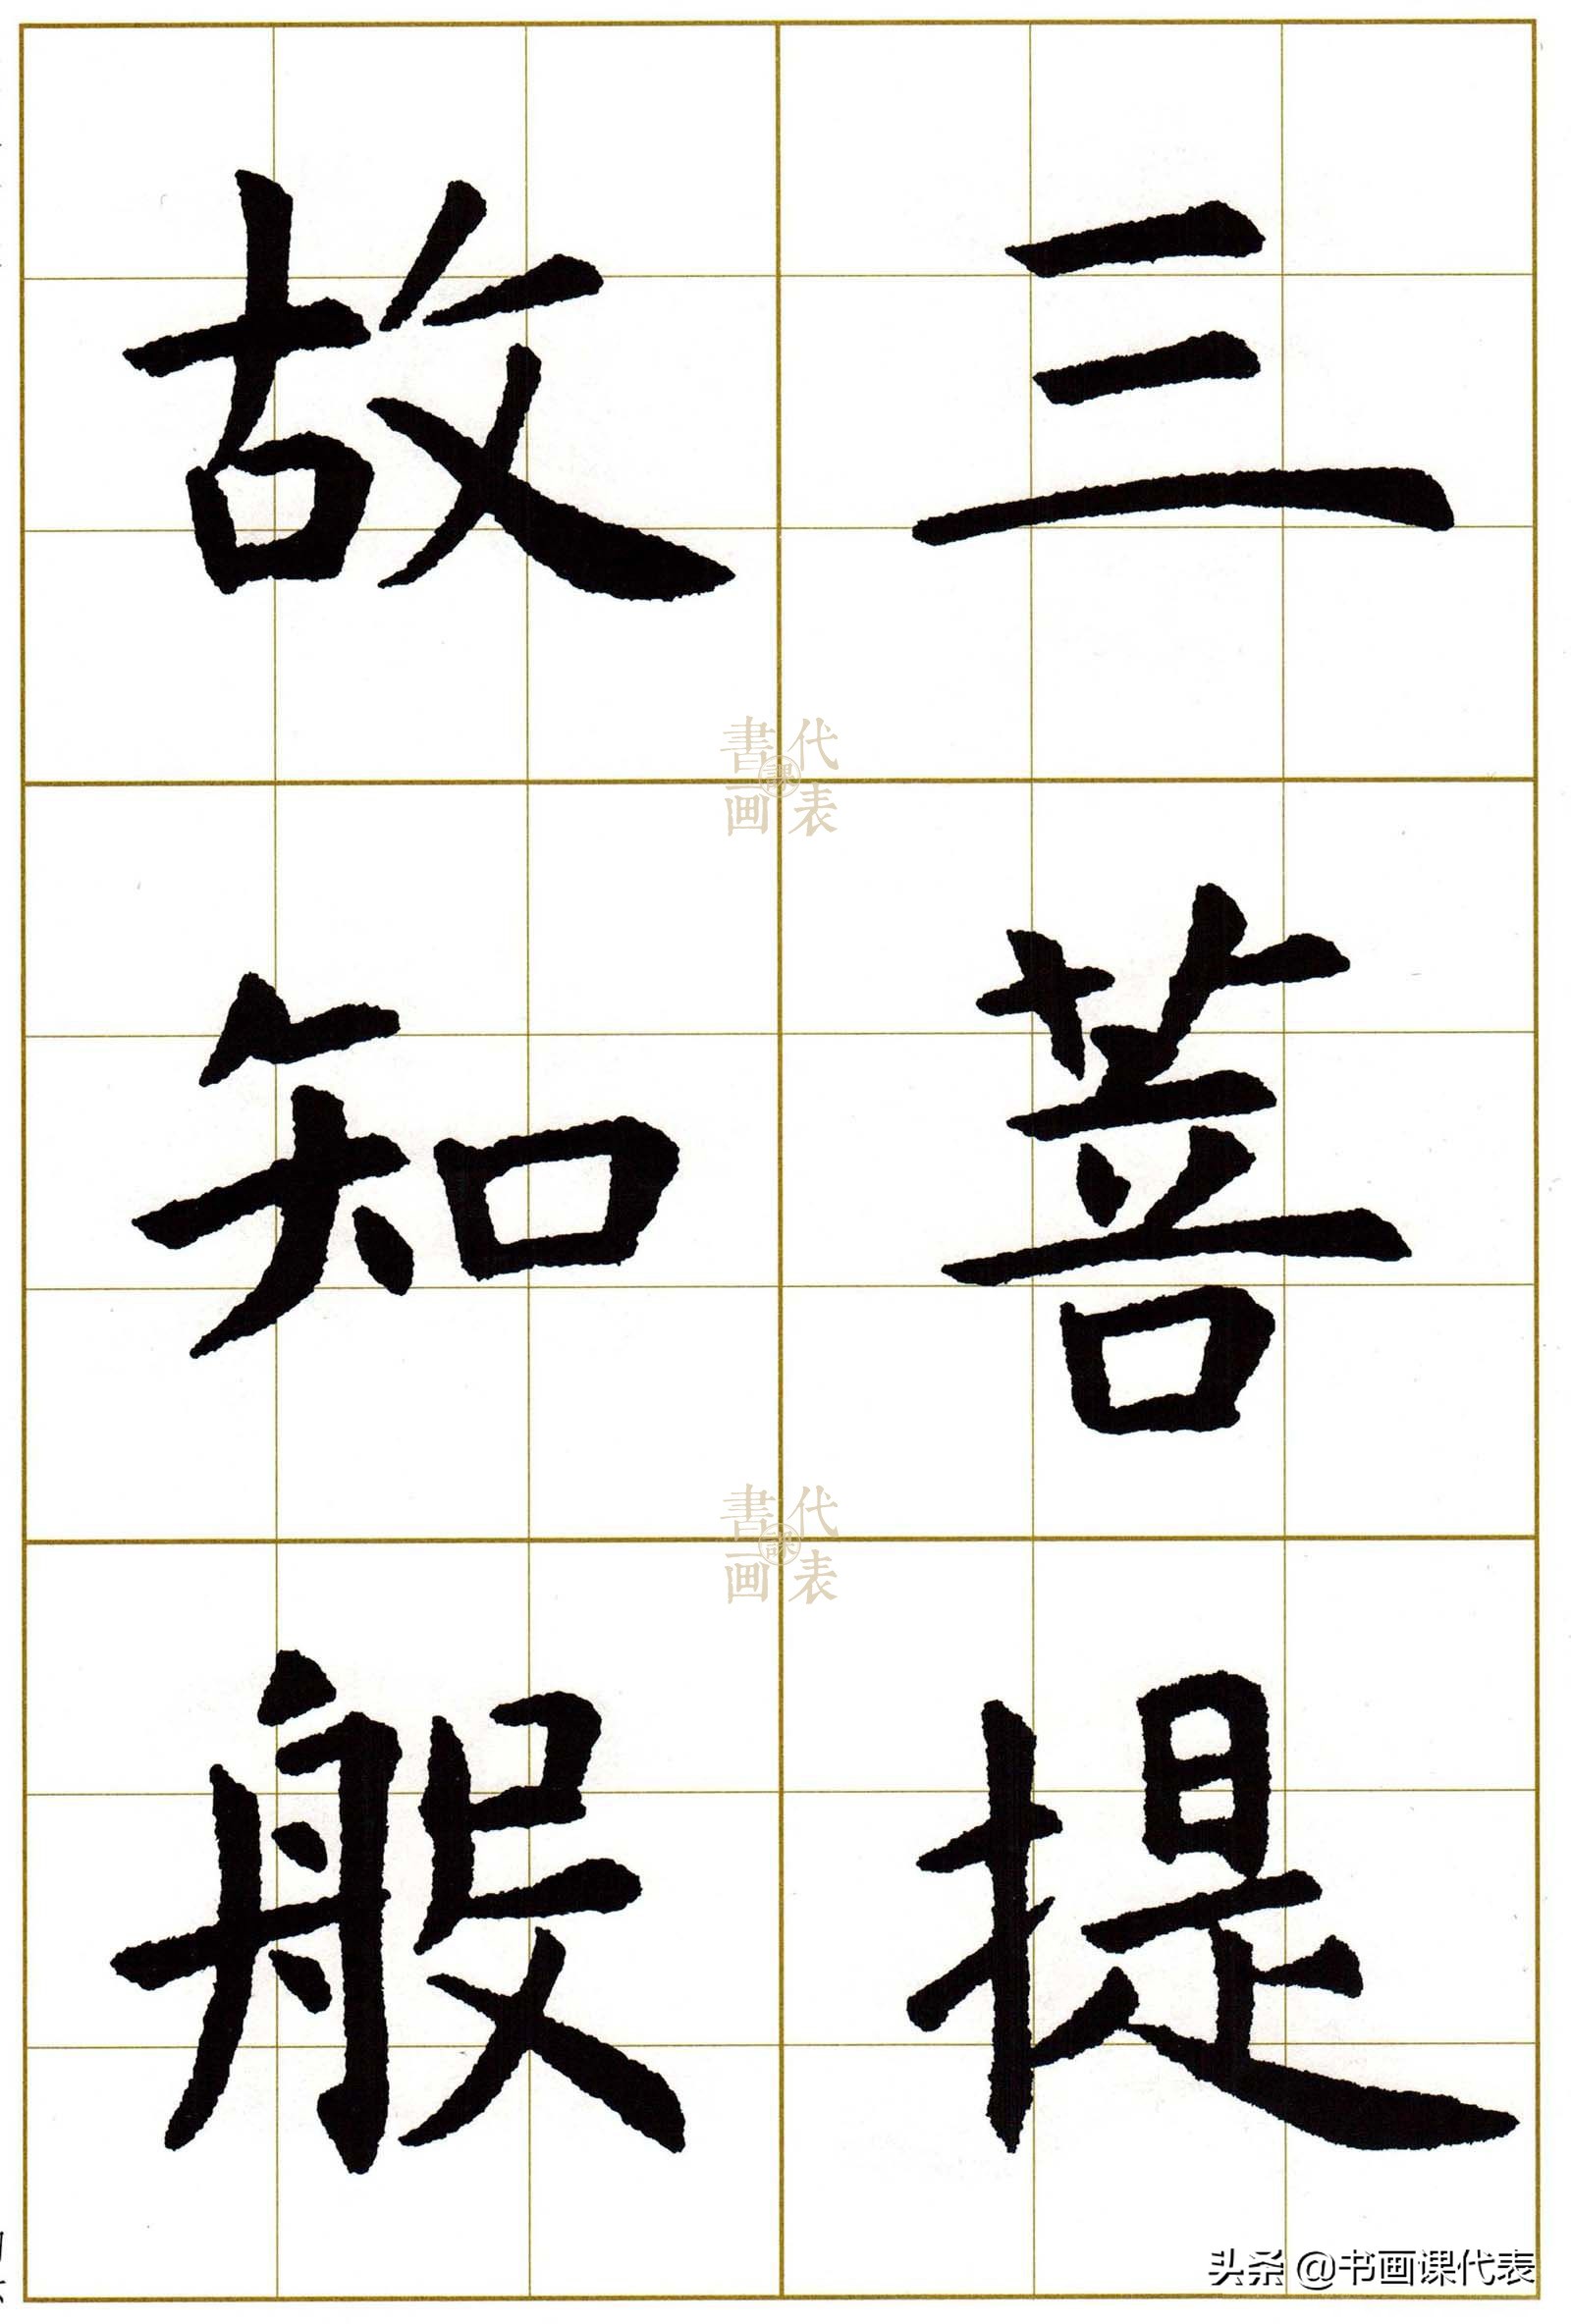 三菩提
故知般
書画課代表
書画課代表
头条 @书画课代表